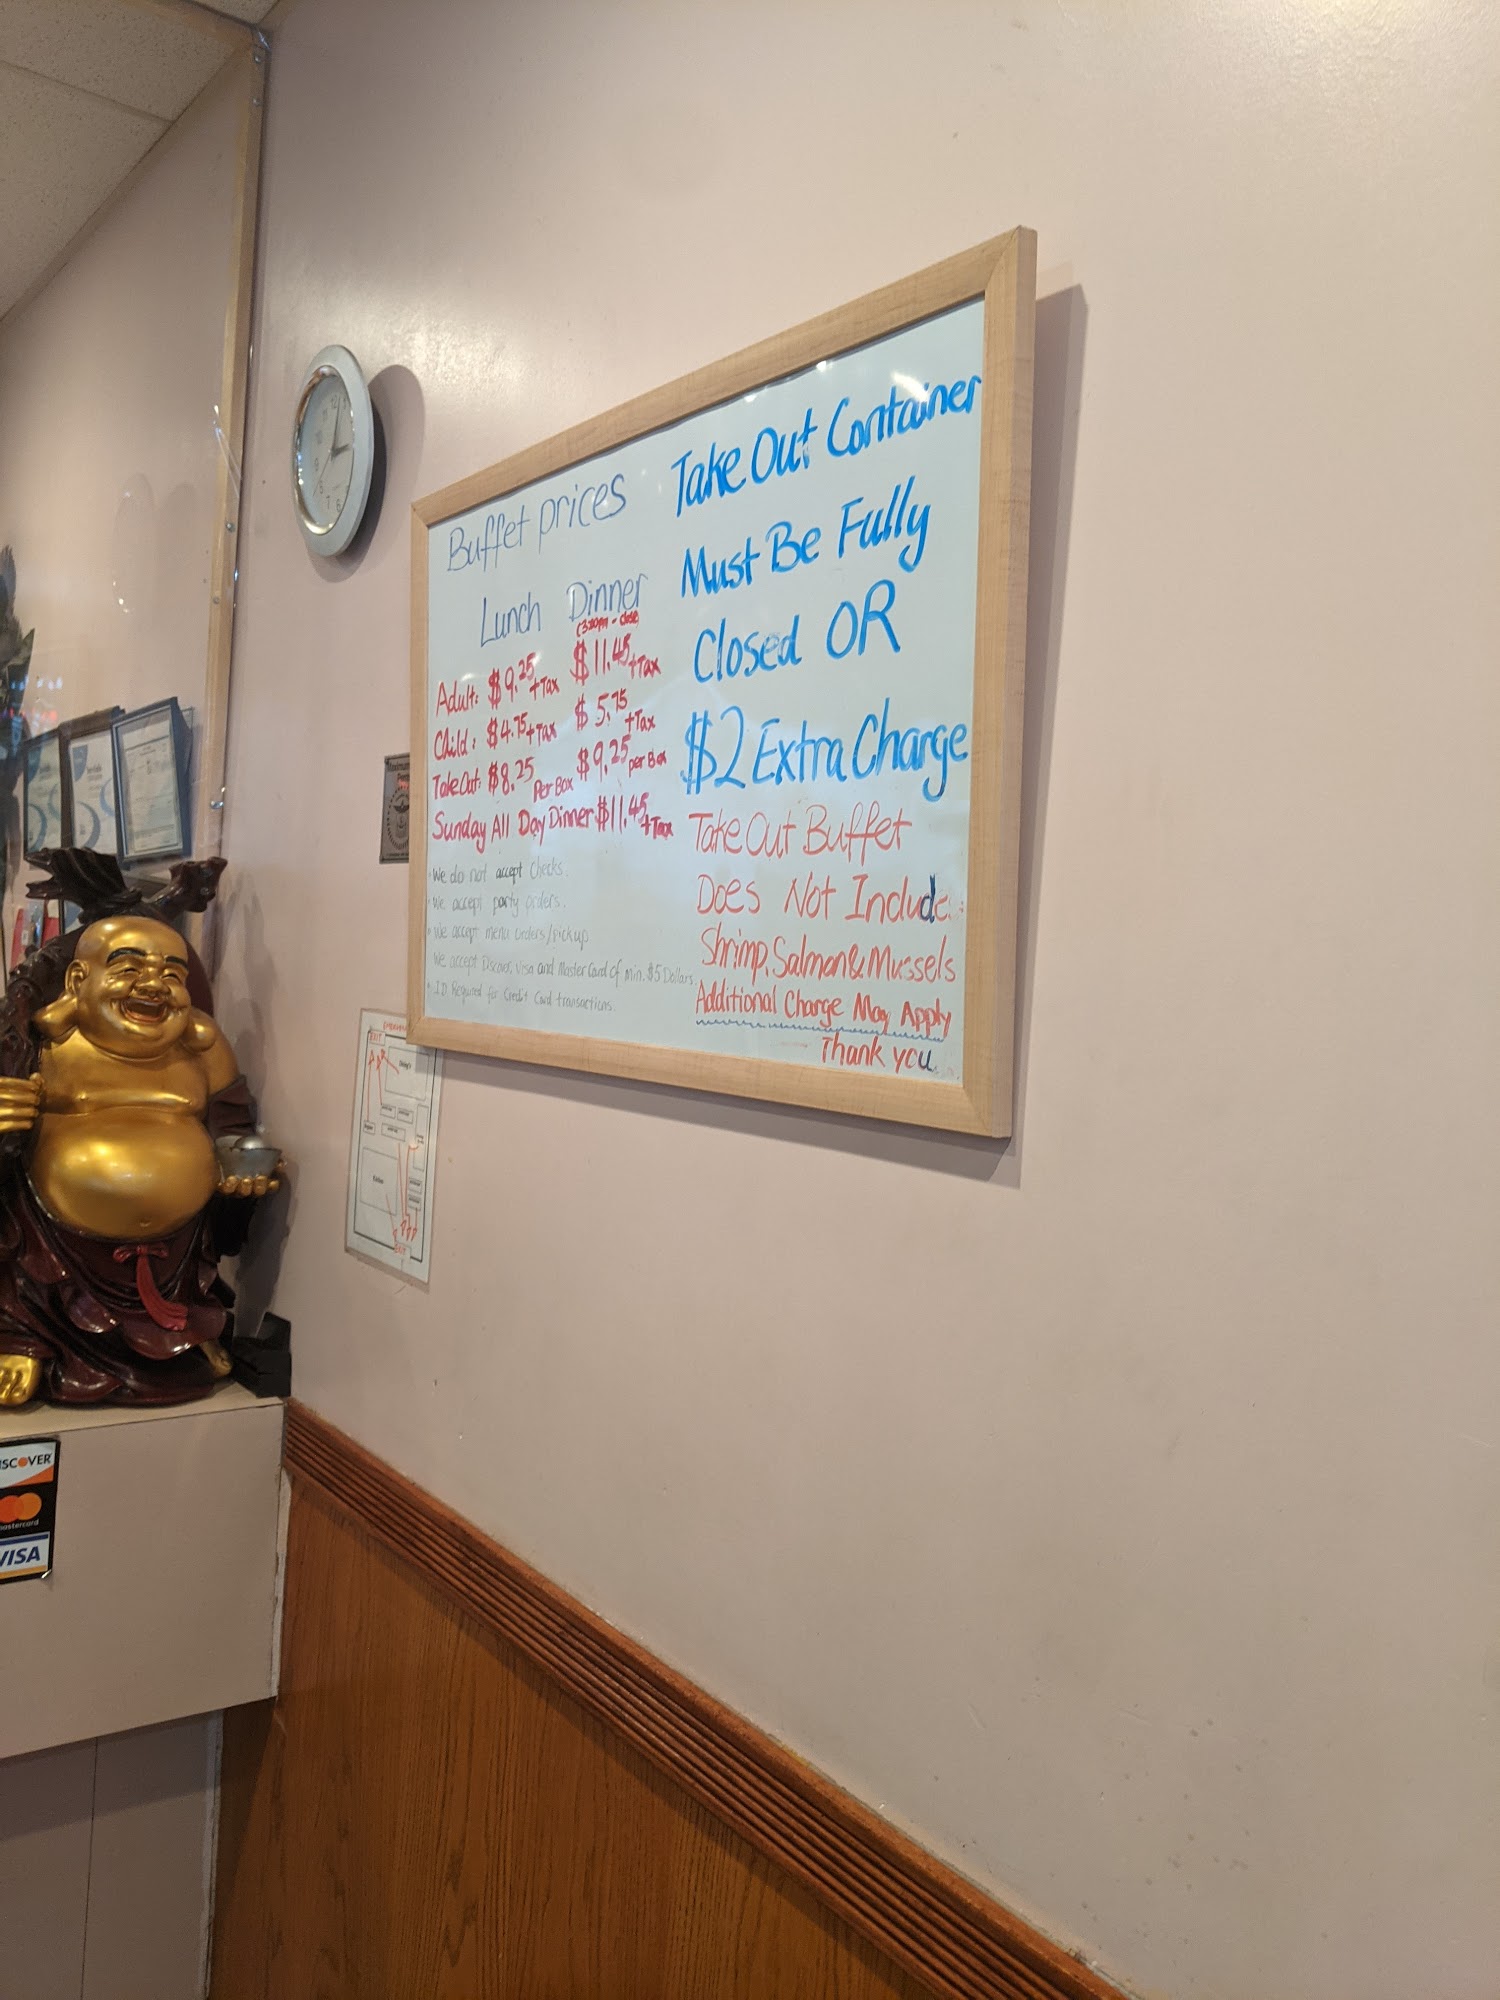 Buffet prices
Lunch Dinner
(3:30pm - close)
Adult: $9.25 +Tax $11.45 +Tax
Child: $4.75 +Tax $5.75 +Tax
Take Out: $8.25 Per Box $9.25 per Box
Sunday All Day Dinner $11.45 +Tax
We do not accept Checks.
We accept party orders.
We accept menu orders/pickup
We accept Discover, Visa and Master Card of min. $5 Dollars.
I.D Required for Credit Card transactions.
Take Out Container
Must Be Fully
Closed OR
$2 Extra Charge
Take Out Buffet
Does Not Include:
Shrimp, Salmon & Mussels
Additional Charge May Apply
Thank you.
EXIT
Kitchen
EXIT
DISCOVER
mastercard
VISA